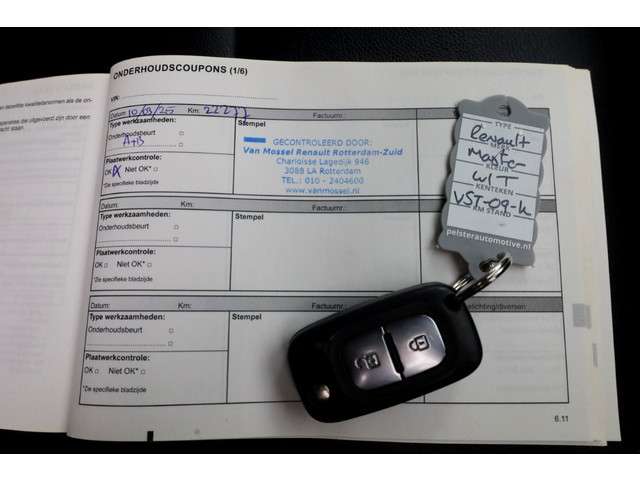 ONDERHOUDSCOUPONS (1/6)
VIN:
Datum: 10/03/25 Km: 22277 Factuurnr.:
Type werkzaamheden:
Onderhoudsbeurt
A+B
Plaatwerkcontrole:
OK X Niet OK* □
*De specifieke bladzijde
Stempel
GECONTROLEERD DOOR:
Van Mossel Renault Rotterdam-Zuid
Charloisse Lagedijk 946
3088 LA Rotterdam
TEL.: 010 - 2404600
www.vanmossel.nl
Datum: Km: Factuurnr.:
Type werkzaamheden:
Onderhoudsbeurt □
Plaatwerkcontrole:
OK □ Niet OK* □
*De specifieke bladzijde
Stempel
Datum: Km: Factuurnr.:
Type werkzaamheden:
Onderhoudsbeurt □
Plaatwerkcontrole:
OK □ Niet OK* □
*De specifieke bladzijde
Stempel
lichting/diversen
6.11
TYPE
Renault
Master
KLEUR
WIT
KENTEKEN
VST-09-K
KM STAND
pelsterautomotive.nl